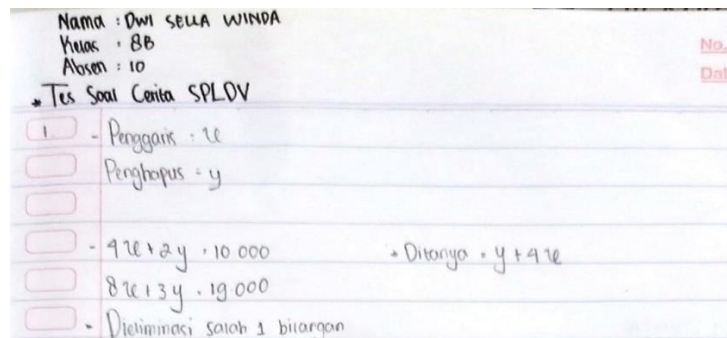 Nama : DWI SELLA WINDA
Kelas : 8B
Absen : 10
No.
Dat
* Tes Soal Cerita SPLDV
1 - Penggaris = x
Penghapus = y
- 4x + 2y = 10.000 * Ditanya = y + 4x
8x + 3y = 19.000
- Dieliminasi salah 1 bilangan